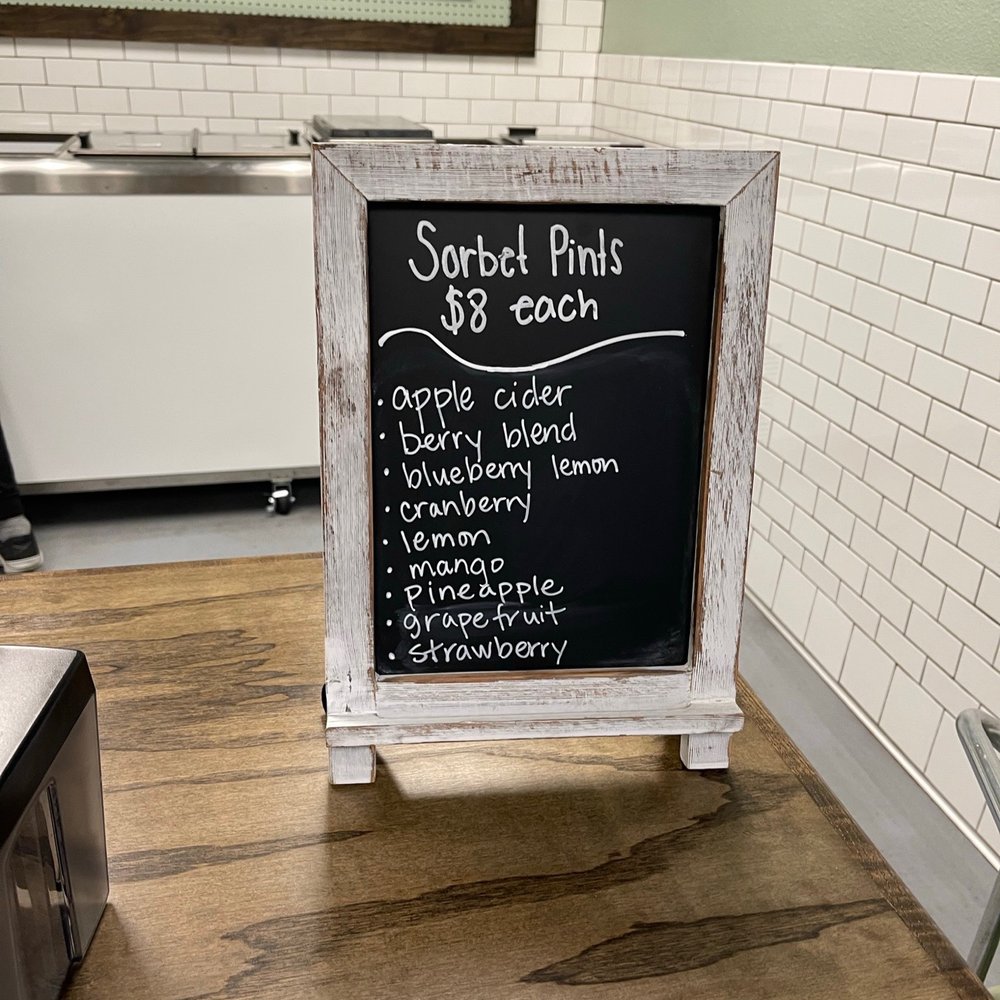 Sorbet Pints
$8 each
• apple cider
• berry blend
• blueberry lemon
• cranberry
• lemon
• mango
• pineapple
• grapefruit
• strawberry